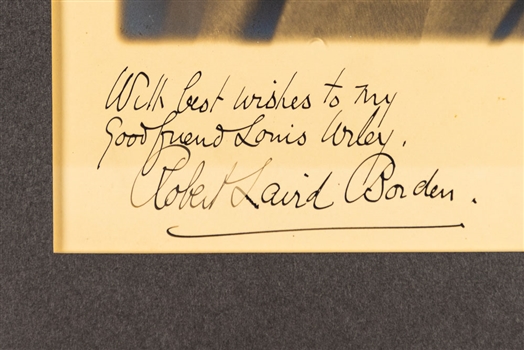 With best wishes to my
Good friend Louis Wiley.
Robert Laird Borden.